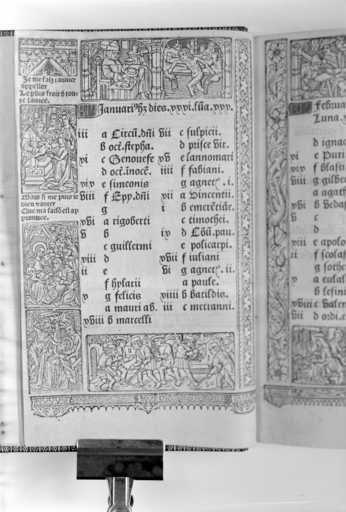 Je me faiz Januier
appeller
Le plus froit de tou-
te lannee.
Januari9 hz dies. xxxi. lūa. xxx.
iii a Circū. dñi
b oct. stepha.
xi c Genouefe
d oct. innoc.
xix e simeonis
viii f Epy. dñi
g
xvi a rigoberti
v b
c guillermi
xiii d
ii e
f hylarii
x g felicis
a mauri ab.
xviii b marcelli
vii c sulpicii.
d prisce vir.
xv e lannomari
iiii f fabiani.
g agnet. .i.
xii a Vincentii.
i b emerēcide.
c timothei.
ix d Cōv. pau.
e policarpi.
xvii f iuliani
vi g agnet. .ii.
a paule.
xiiii b batildis.
iii c metranni.
Februa
Luna. x
d ignac
xi e Puri
xix f blasii
viii g gilber
a agath
xvi b vedas
v c
d
xiii e apolo
ii f scolas
g sothe
x a eulal
b lesini
xviii c valen
vii d